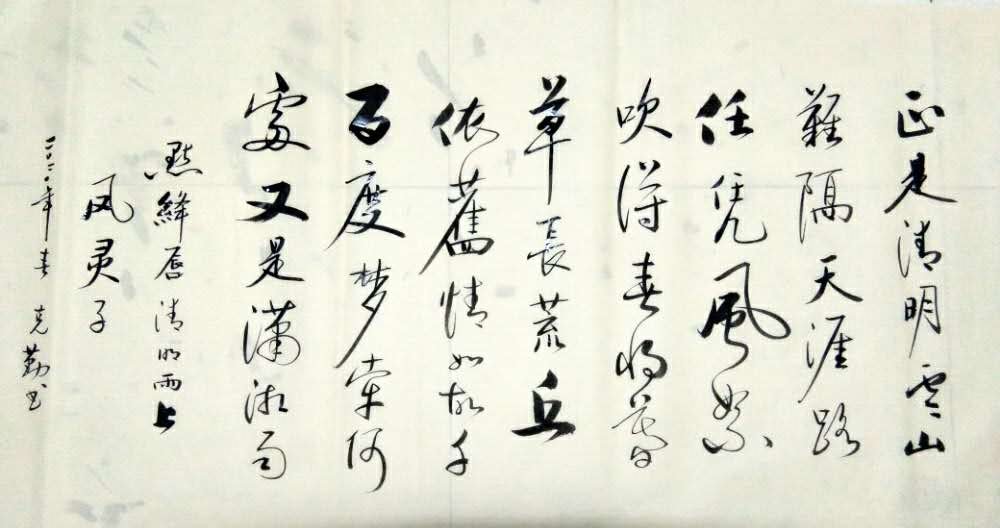 正是清明雲山
難隔天涯路
任凭風絮
吹得春将暮
草長荒丘
依舊情如故千
百度梦牵何
處又是瀟湘雨
點絳唇清明雨上
风灵子
二〇二〇年春 克勤书